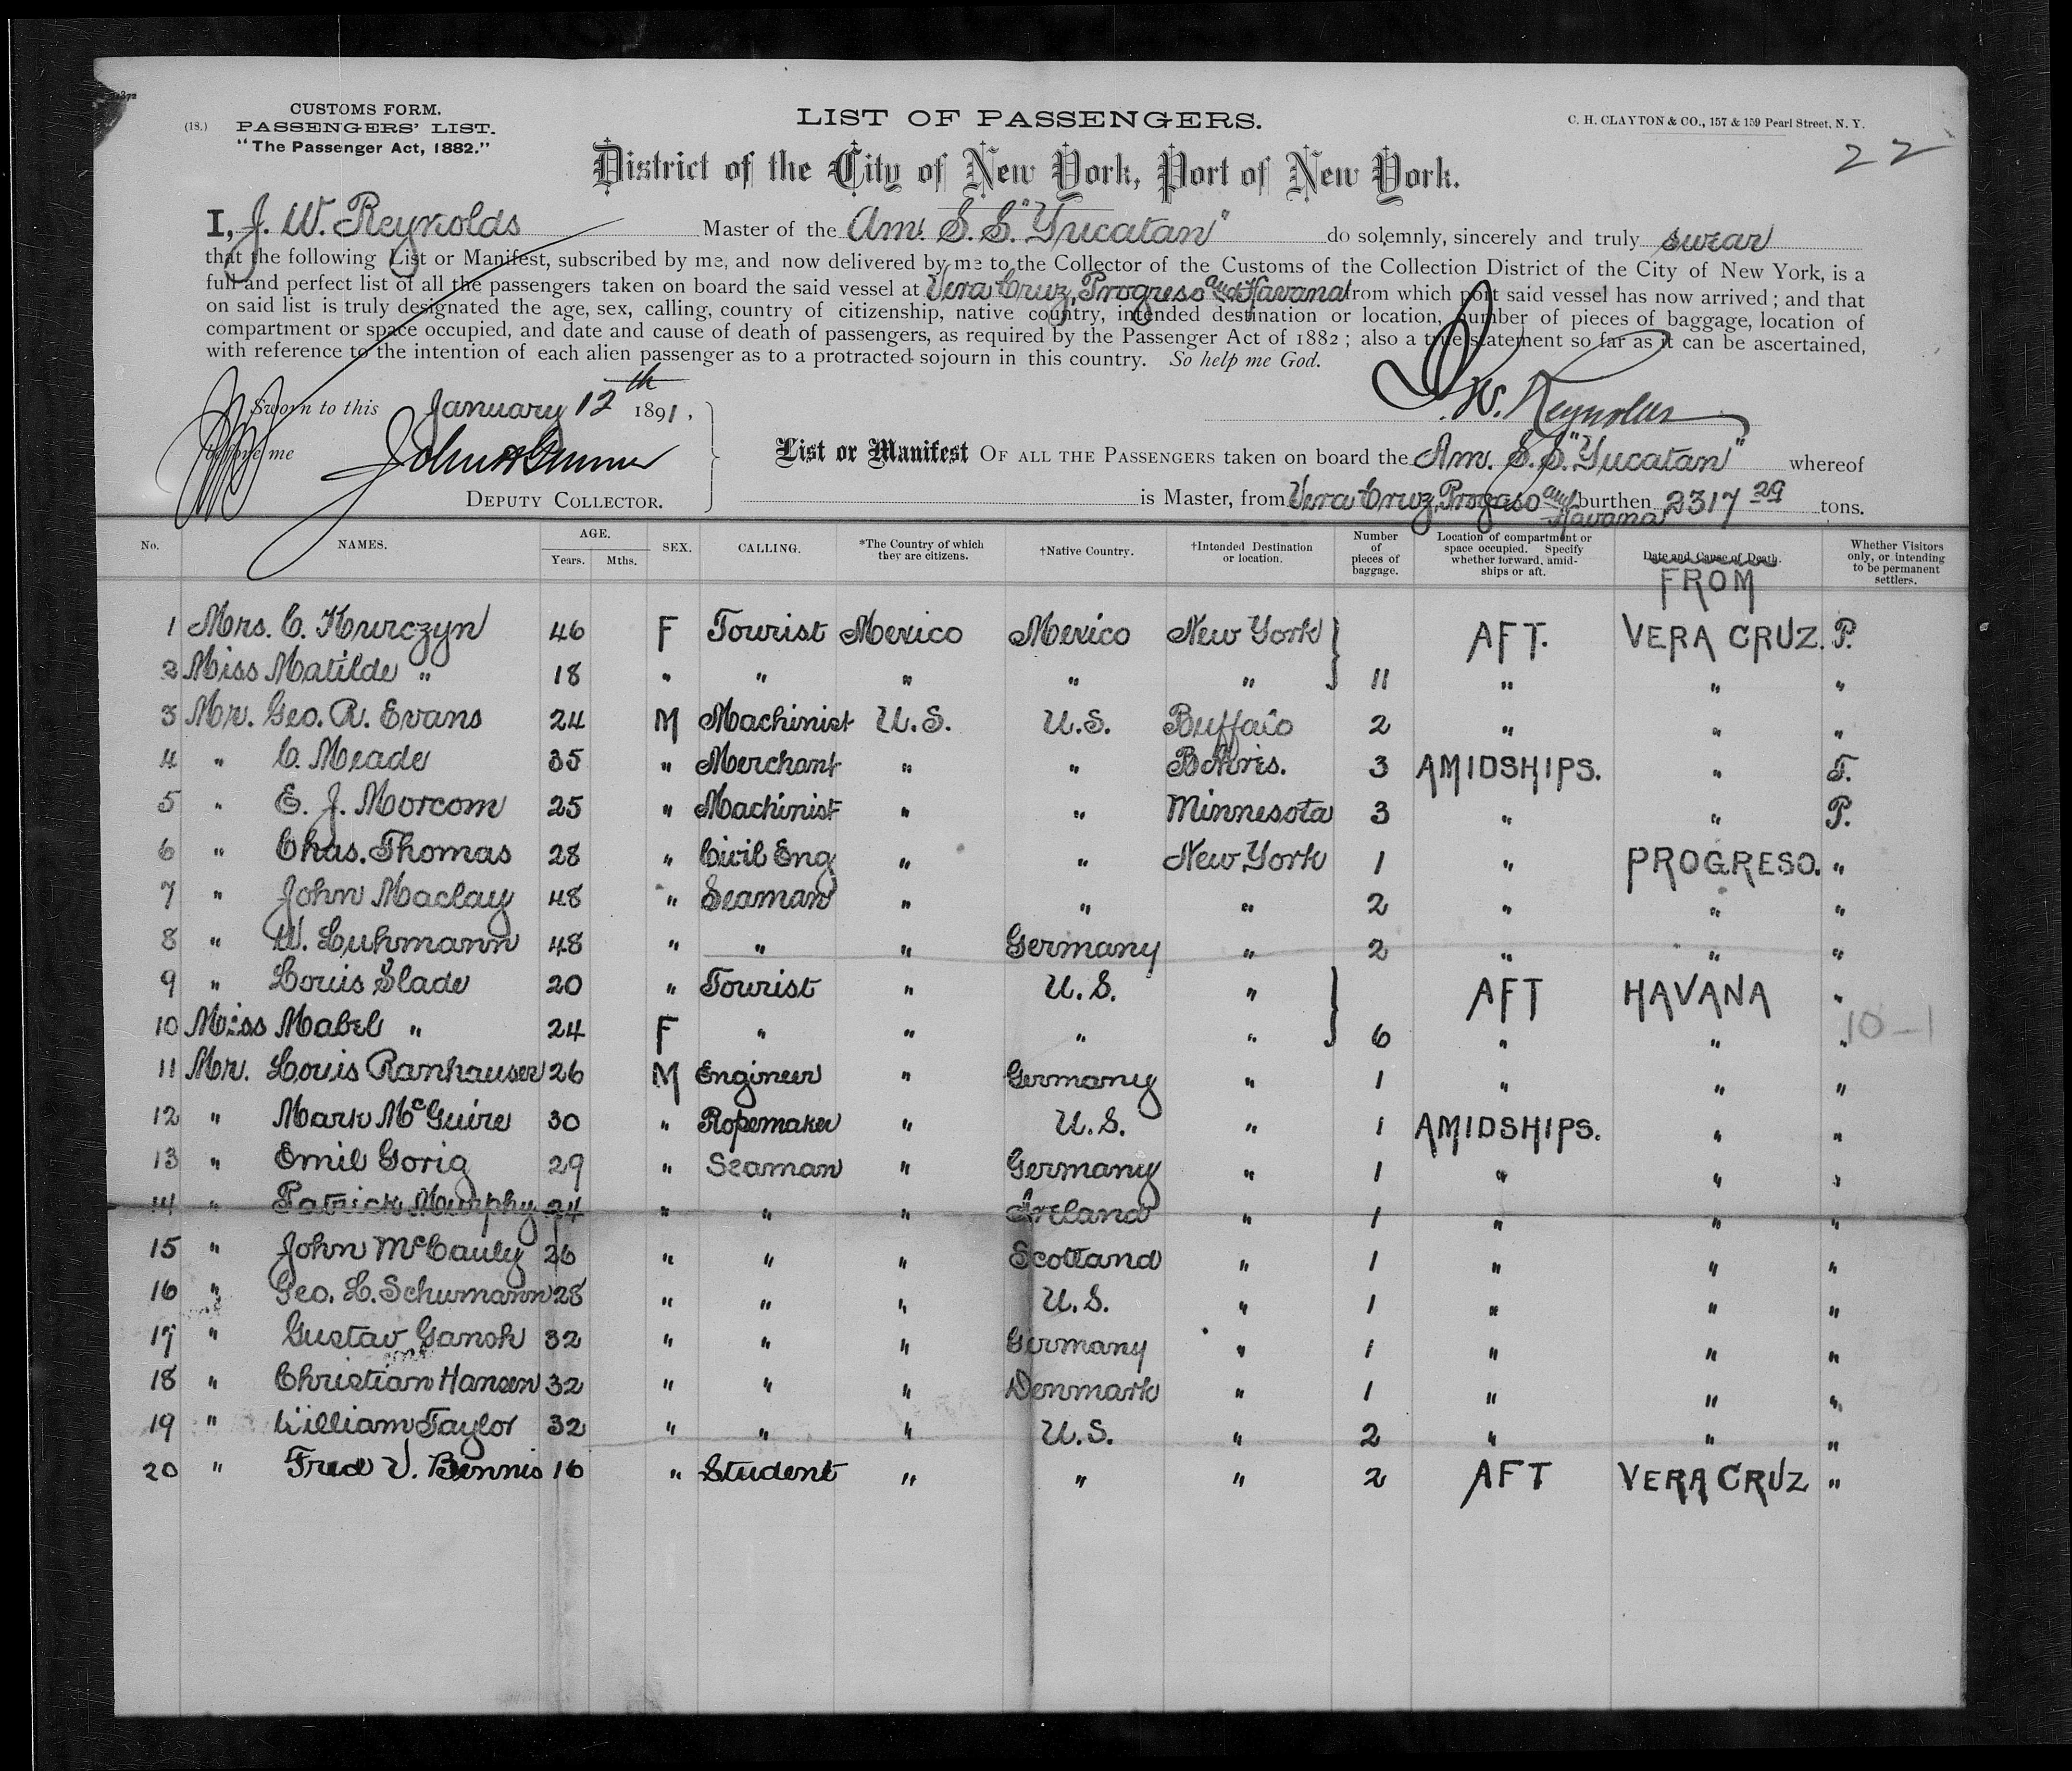 CUSTOMS FORM.
(18.) PASSENGERS' LIST.
"The Passenger Act, 1882."
LIST OF PASSENGERS.
C. H. CLAYTON & CO., 157 & 159 Pearl Street, N. Y.
22
District of the City of New York, Port of New York.
I, J. W. Reynolds Master of the Am. S. S. "Yucatan" do solemnly, sincerely and truly swear
that the following List or Manifest, subscribed by me, and now delivered by me to the Collector of the Customs of the Collection District of the City of New York, is a
full and perfect list of all the passengers taken on board the said vessel at Vera Cruz, Progreso and Havana from which port said vessel has now arrived; and that
on said list is truly designated the age, sex, calling, country of citizenship, native country, intended destination or location, number of pieces of baggage, location of
compartment or space occupied, and date and cause of death of passengers, as required by the Passenger Act of 1882; also a true statement so far as it can be ascertained,
with reference to the intention of each alien passenger as to a protracted sojourn in this country. So help me God.
Sworn to this January 12th 1891,
J. W. Reynolds
before me
DEPUTY COLLECTOR.
List or Manifest OF ALL THE PASSENGERS taken on board the Am. S. S. "Yucatan" whereof
is Master, from Vera Cruz, Progreso and Havana burthen 2317 29 tons.
No. NAMES. AGE. Years. Mths. SEX. CALLING. *The Country of which they are citizens. †Native Country. †Intended Destination or location. Number of pieces of baggage. Location of compartment or space occupied. Specify whether forward, amidships or aft. Date and Cause of Death. FROM Whether Visitors only, or intending to be permanent settlers.
1 Mrs. C. Kurczyn 46 F Tourist Mexico Mexico New York AFT. VERA CRUZ. P.
2 Miss Matilde " 18 " " " " " 11 " " "
3 Mr. Geo. R. Evans 24 M Machinist U.S. U.S. Buffalo 2 " " "
4 " C. Meade 35 " Merchant " " B. Ayres. 3 AMIDSHIPS. " T.
5 " E. J. Morcom 25 " Machinist " " Minnesota 3 " " P.
6 " Chas. Thomas 28 " Civil Eng " " New York 1 " PROGRESO. "
7 " John Maclay 48 " Seaman " " " 2 " " "
8 " W. Luhmann 48 " " " Germany " 2 " " "
9 " Louis Slade 20 " Tourist " U.S. " AFT HAVANA "
10 Miss Mabel " 24 F " " " " 6 " " " 10-1
11 Mr. Louis Ranhauser 26 M Engineer " Germany " 1 " " "
12 " Mark McGuire 30 " Ropemaker " U.S. " 1 AMIDSHIPS. " "
13 " Emil Gorig 29 " Seaman " Germany " 1 " " "
14 " Patrick Murphy 24 " " " Ireland " 1 " " "
15 " John McCauly 26 " " " Scotland " 1 " " "
16 " Geo. L. Schumann 28 " " " U.S. " 1 " " "
17 " Gustav Gansh 32 " " " Germany " 1 " " "
18 " Christian Hansen 32 " " " Denmark " 1 " " "
19 " William Taylor 32 " " " U.S. " 2 " " "
20 " Fred V. Bennis 16 " Student " " " 2 AFT VERA CRUZ "